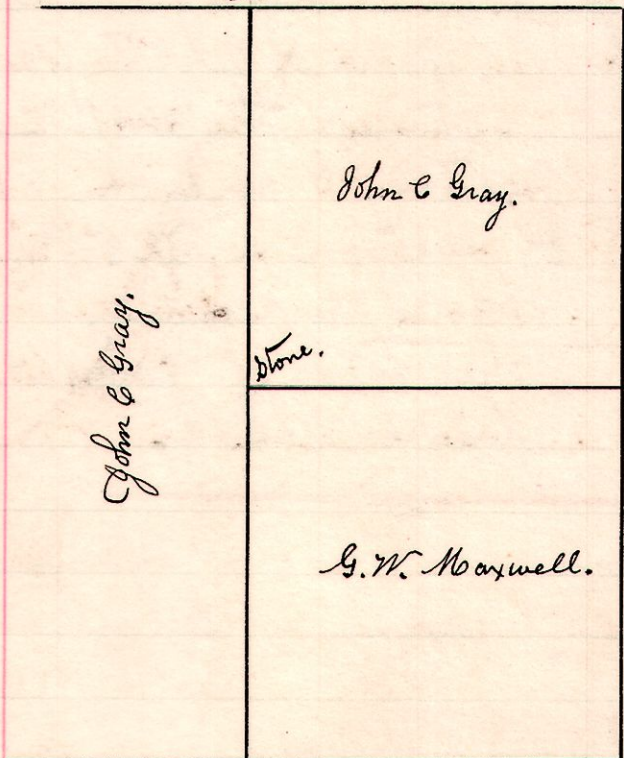 John C Gray.
John C Gray.
Stone.
G. W. Maxwell.